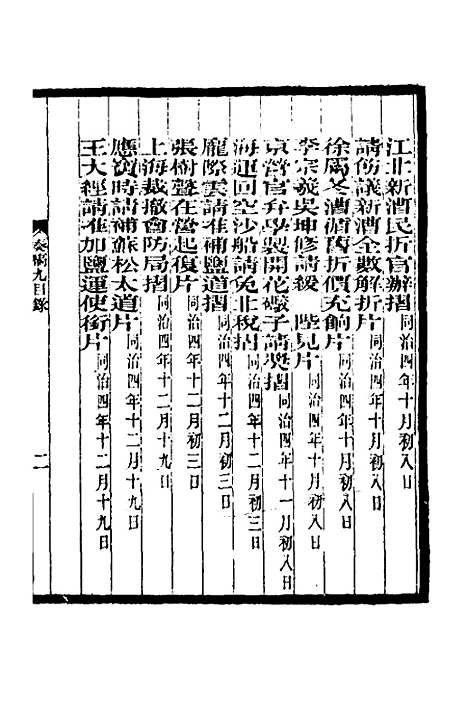 江北新漕民折官辦摺同治四年十月初八日
請飭議新漕全數解折片同治四年十月初八日
徐屬冬漕循舊折價充餉片同治四年十月初八日
李宗羲吳坤修請緩 陛見片同治四年十月初八日
京營官弁學製開花礮子請獎摺同治四年十一月初八日
海運回空沙船請免北稅摺同治四年十二月初三日
龐際雲請准補鹽道摺同治四年十二月初三日
張樹聲在當起復片同治四年十二月初三日
上海裁撤會防局摺同治四年十二月十九日
應寶時請補蘇松太道片同治四年十二月十九日
王大經請准加鹽運使銜片同治四年十二月十九日
奏稿九目錄
二